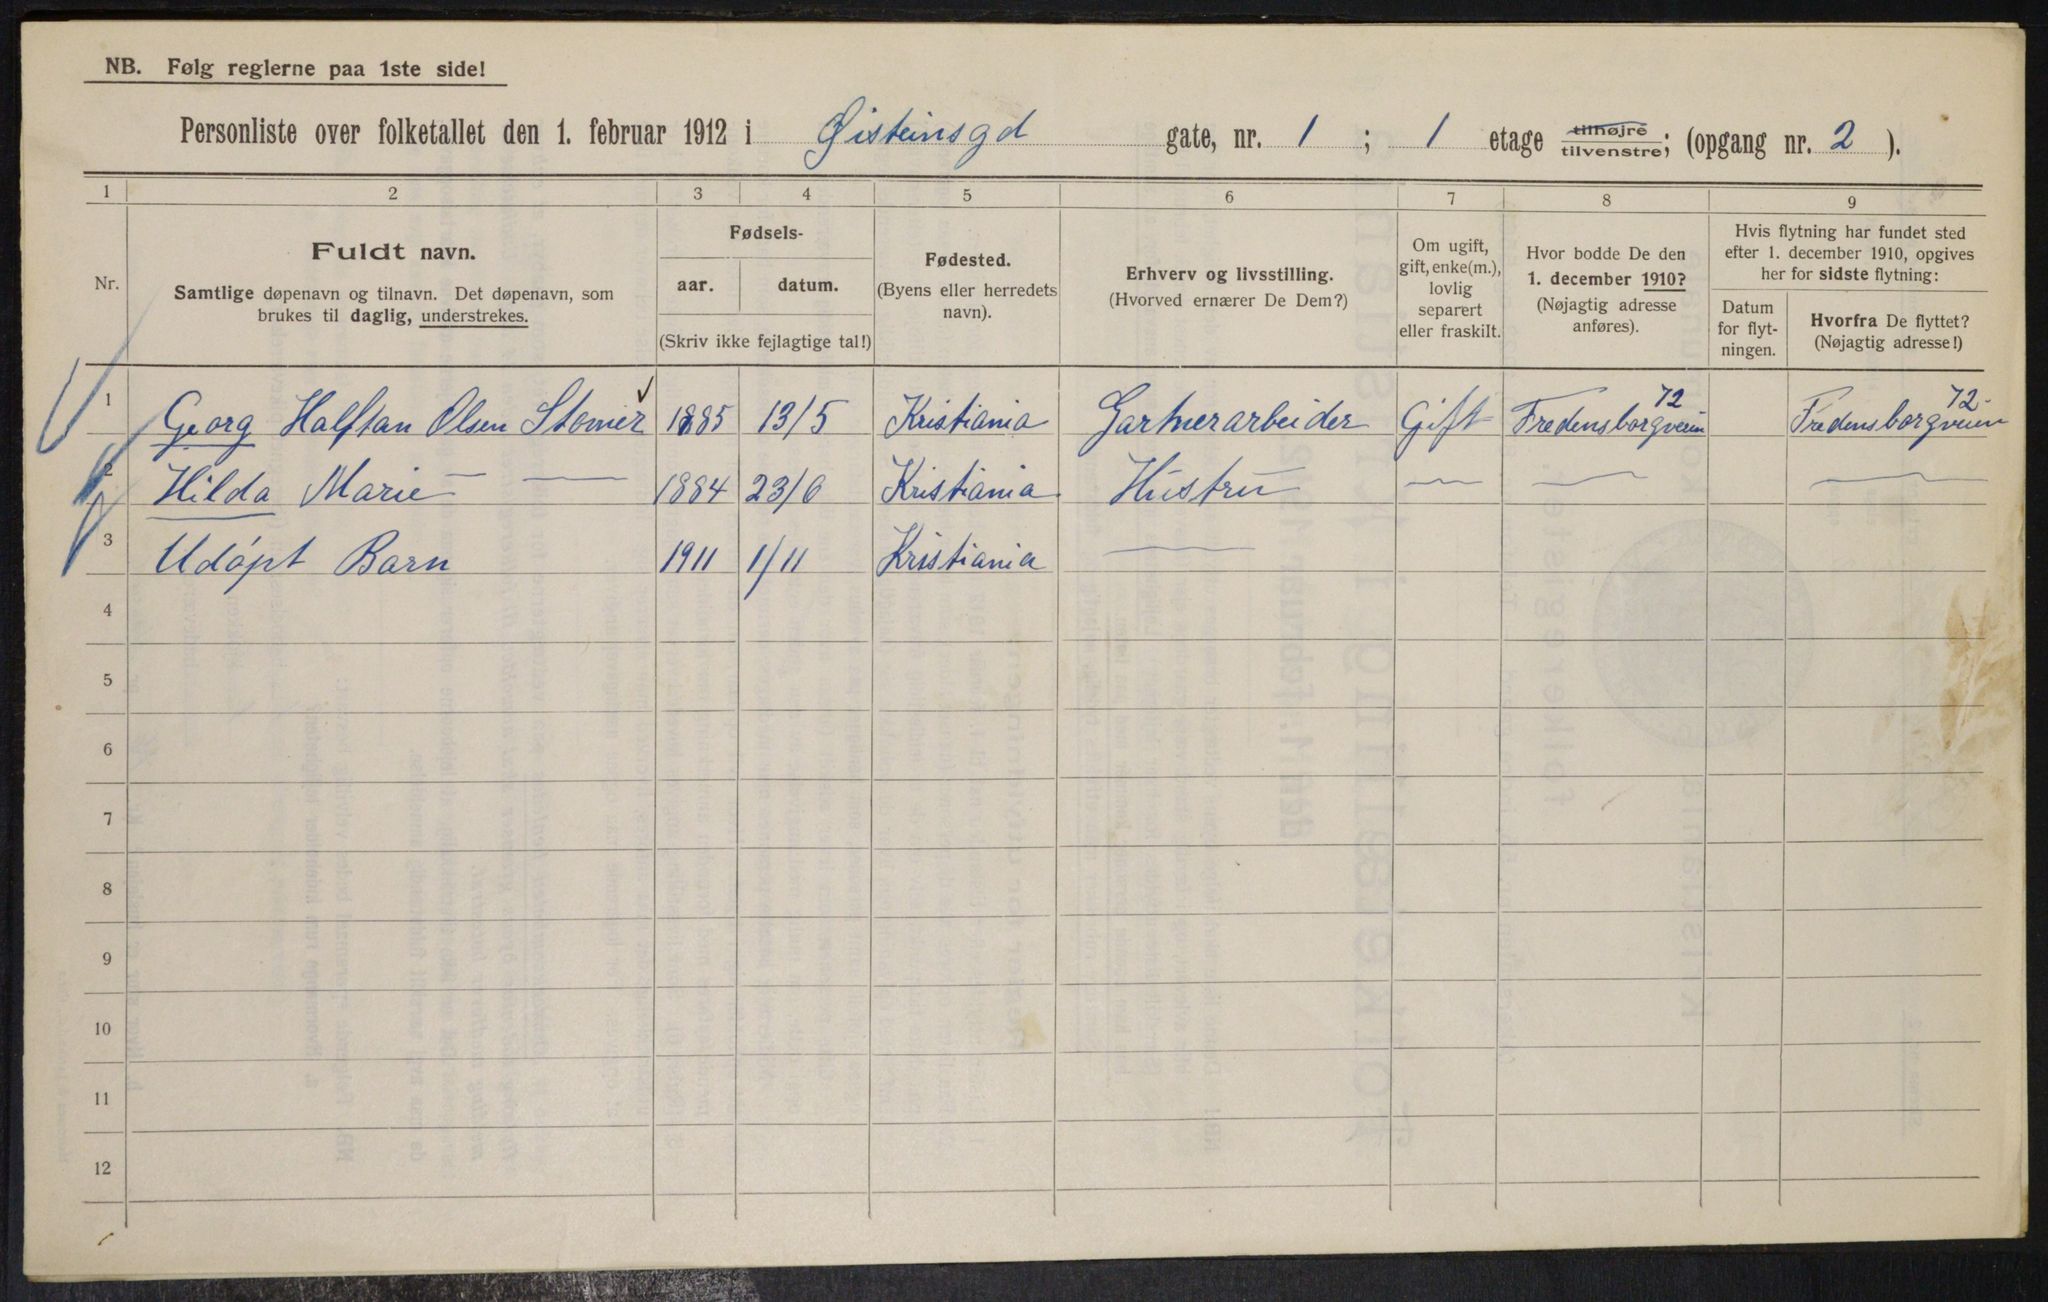 NB. Følg reglerne paa 1ste side!
Personliste over folketallet den 1. februar 1912 i Øisteinsgd gate, nr. 1 ; 1 etage tilhøjre tilvenstre; (opgang nr. 2 ).
1 2 3 4 5 6 7 8 9
Nr.
Fuldt navn.
Samtlige døpenavn og tilnavn. Det døpenavn, som
brukes til daglig, understrekes.
Fødsels-
aar. datum.
(Skriv ikke fejlagtige tal!)
Fødested.
(Byens eller herredets
navn).
Erhverv og livsstilling.
(Hvorved ernærer De Dem?)
Om ugift,
gift, enke(m.),
lovlig
separert
eller fraskilt.
Hvor bodde De den
1. december 1910?
(Nøjagtig adresse
anføres).
Hvis flytning har fundet sted
efter 1. december 1910, opgives
her for sidste flytning:
Datum
for flyt-
ningen.
Hvorfra De flyttet?
(Nøjagtig adresse!)
1 Georg Halftan Olsen Stomer 1885 13/5 Kristiania Gartnerarbeider Gift Fredensborgveien 72 Fredensborgveien 72
2 Hilda Marie — — 1884 23/6 Kristiania Hustru — — —
3 Udöpt Barn 1911 1/11 Kristiania —
4
5
6
7
8
9
10
11
12